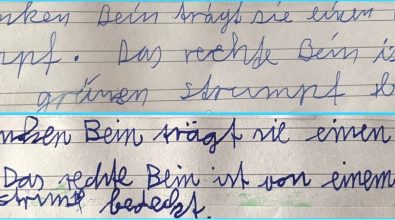 nken Bein trägt sie einen
mpf. Das rechte Bein is
grünen strumpf b
nken Bein trägt sie einen
Das rechte Bein ist von einem
strump bedeckt.